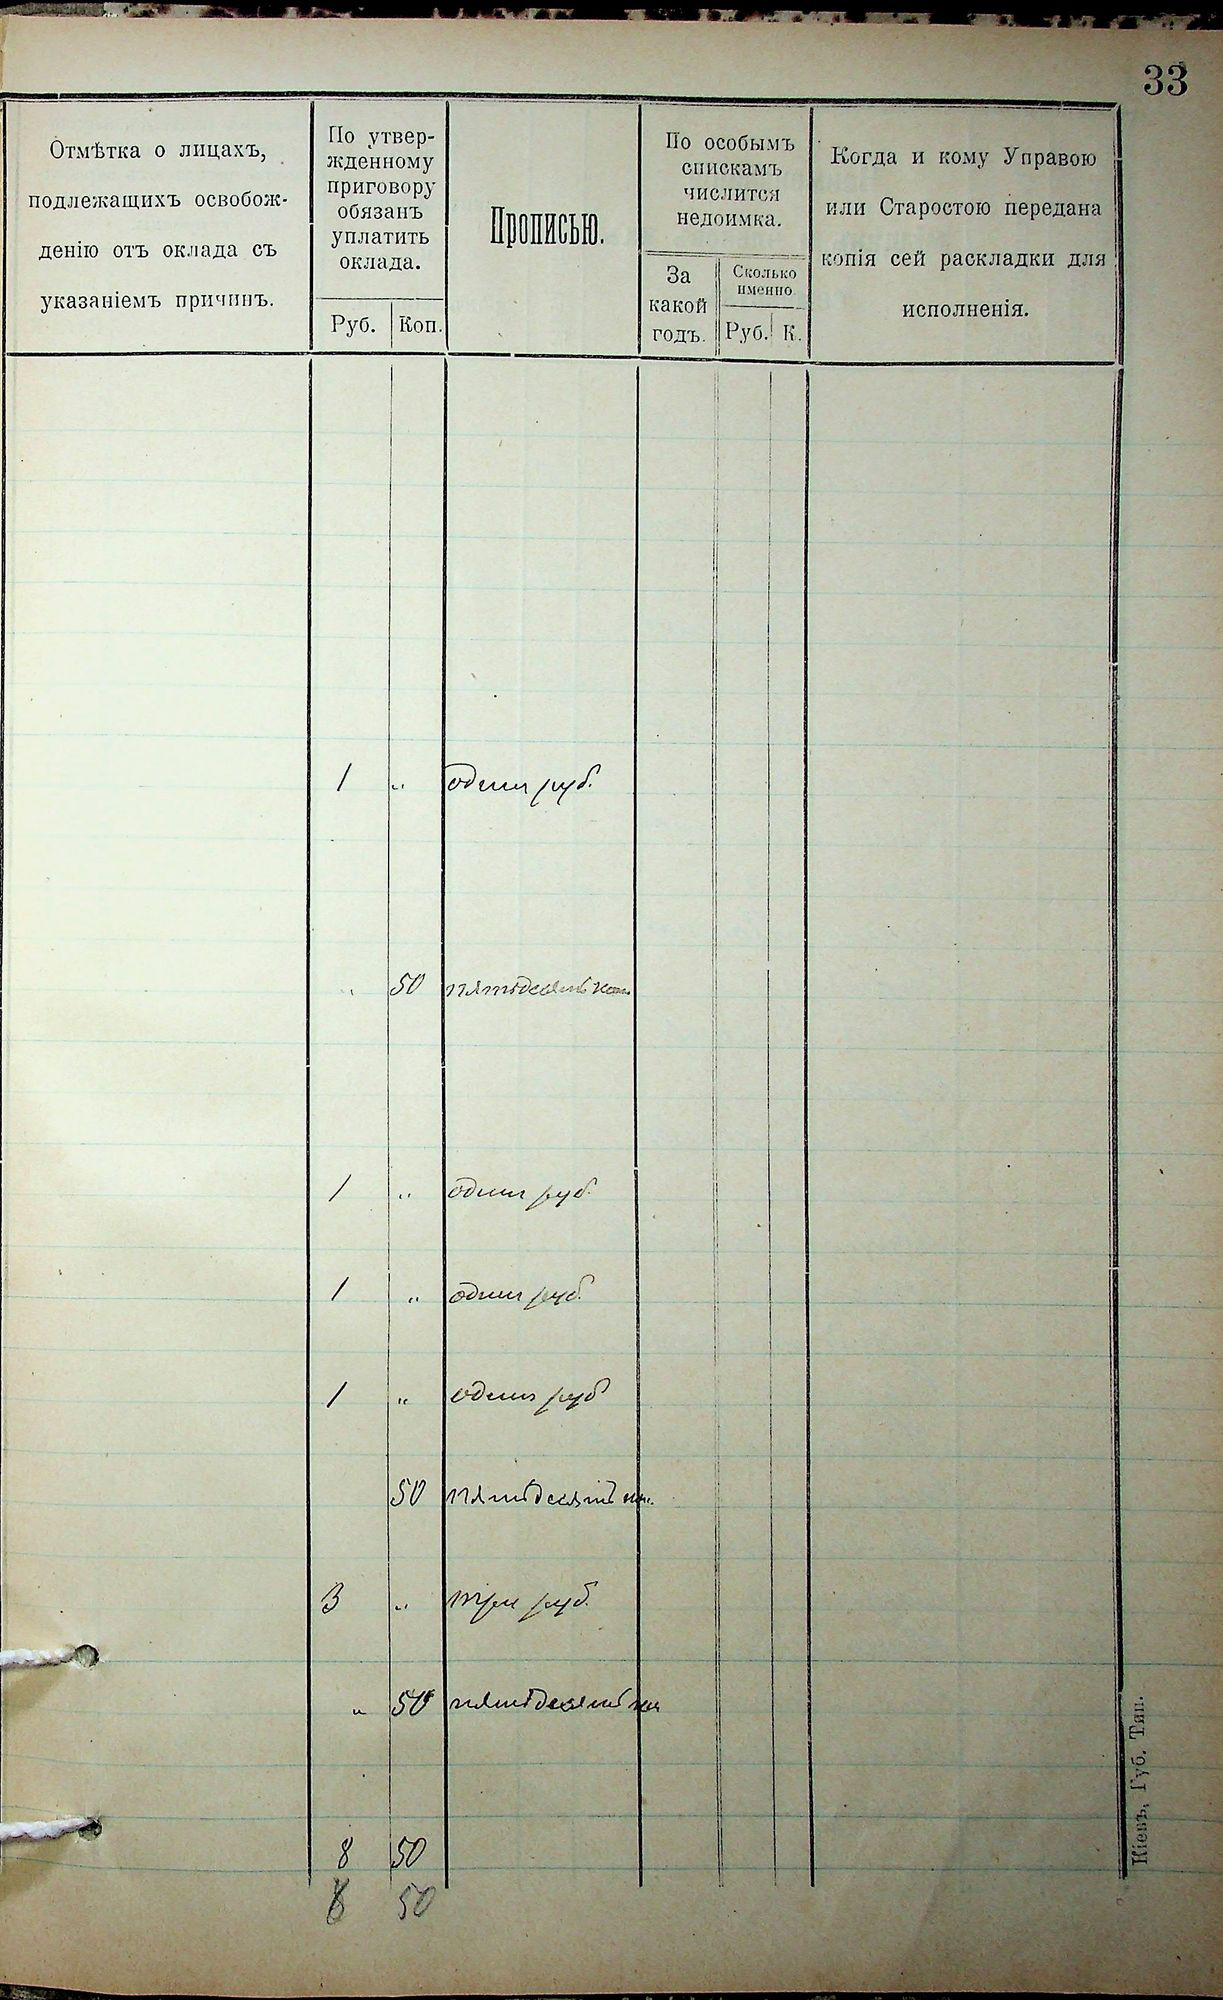 33
Отмѣтка о лицахъ,
подлежащихъ освобож-
денію отъ оклада съ
указаніемъ причинъ.
По утвер-
жденному
приговору
обязанъ
уплатить
оклада.
Руб. Коп.
Прописью.
По особымъ
спискамъ
числится
недоимка.
За
какой
годъ.
Сколько
именно
Руб. К.
Когда и кому Управою
или Старостою передана
копія сей раскладки для
исполненія.
1 " один руб.
" 50 пятьдесятъ коп.
1 " один руб.
1 " один руб.
1 " один руб
50 пятьдесятъ коп.
3 " три руб.
" 50 пятьдесятъ коп
8 50
8 50
Кіевъ, Губ. Тип.